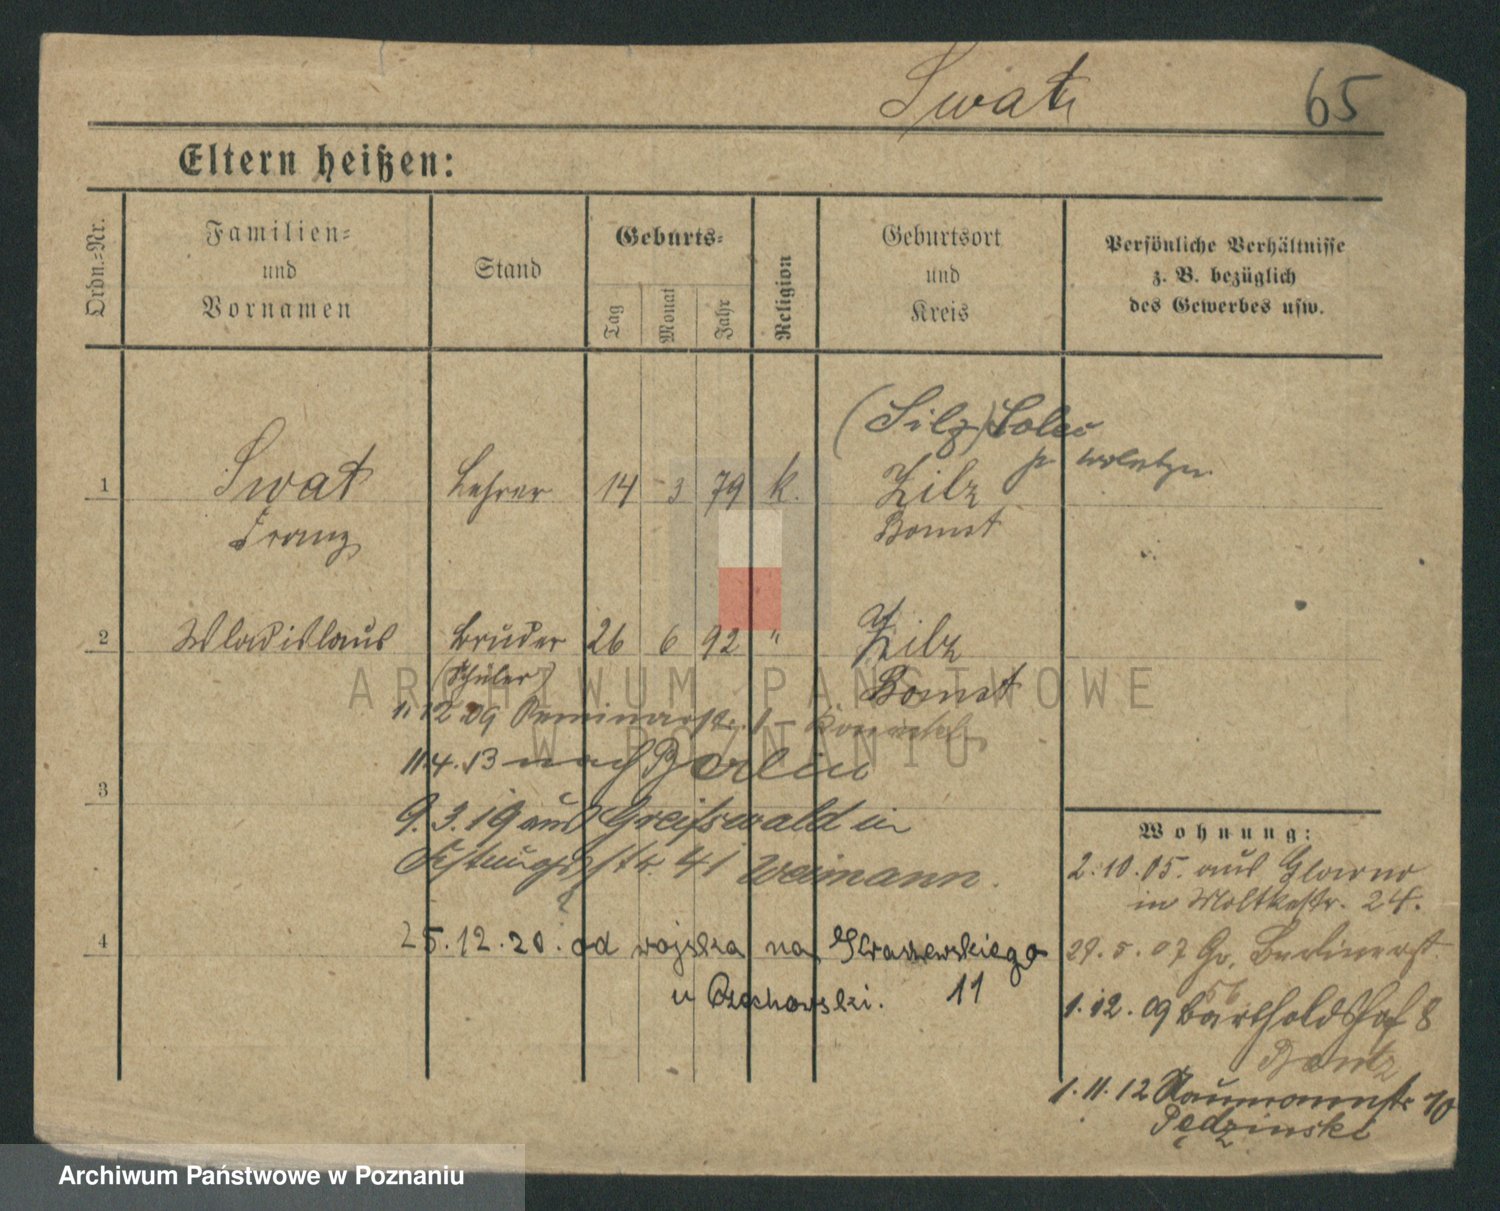 Swat
65
Eltern heißen:
Ordn.-Nr.
Familien-
und
Vornamen
Stand
Geburts-
Tag
Monat
Jahr
Religion
Geburtsort
und
Kreis
Persönliche Verhältnisse
z. B. bezüglich
des Gewerbes usw.
(Silz)
1 Swat Lehrer 14 3 79 k. Zilz
Franz Bomst
2 Wladislaus Bruder 26 6 92 " Zilz
(Schüler) Bomst
1. 12 09
11.4.13 nach Berlin
3
9.3.19 aus Greifswald in
str. 41 Weimann.
4
25.12.20. od wojska na Kraszewskiego
11
u Czechowski.
Wohnung:
2.10.05. aus Gurno
in Moltkestr. 24.
29.5.07 Gr. Berlinerst.
56
1.12.09 Bartholdshof 8
1.11.12 Naumannstr 10
Pędzinski
ARCHIWUM PAŃSTWOWE
W POZNANIU
Archiwum Państwowe w Poznaniu